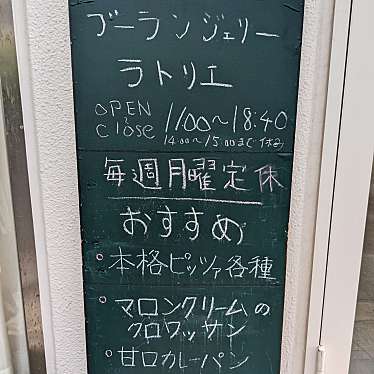 ブーランジェリー
ラトリエ
OPEN
close 11:00~18:40
14:00~15:00まで休み
毎週月曜定休
おすすめ
・本格ピッツァ各種
・マロンクリームの
クロワッサン
・甘口カレーパン